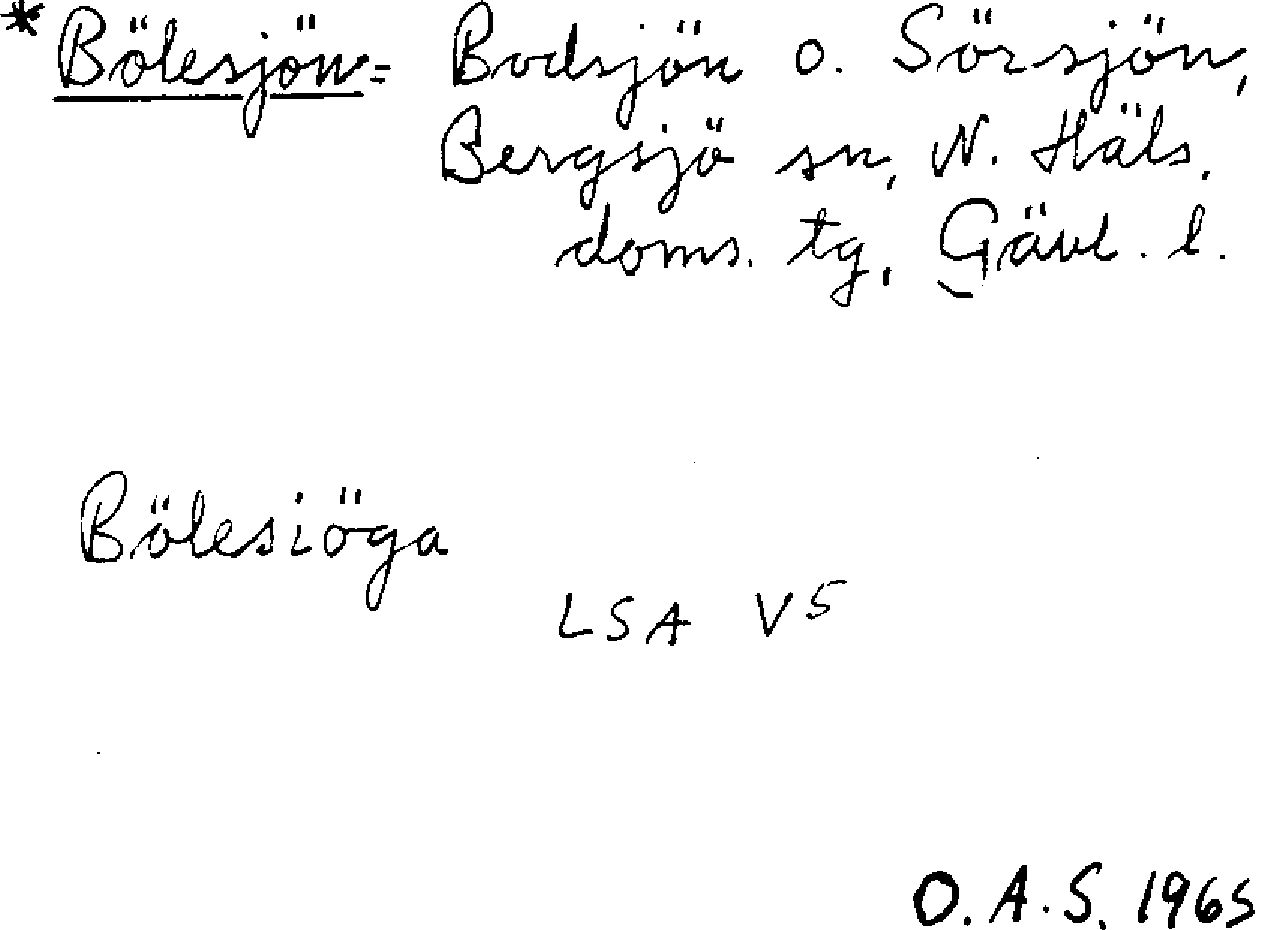 * Bölesjön = Bodsjön o. Sörsjön,
Bergsjö sn, N. Häls.
doms. tg, Gävl. l.
Bölesiöga
LSA V5
O. A. S. 1965